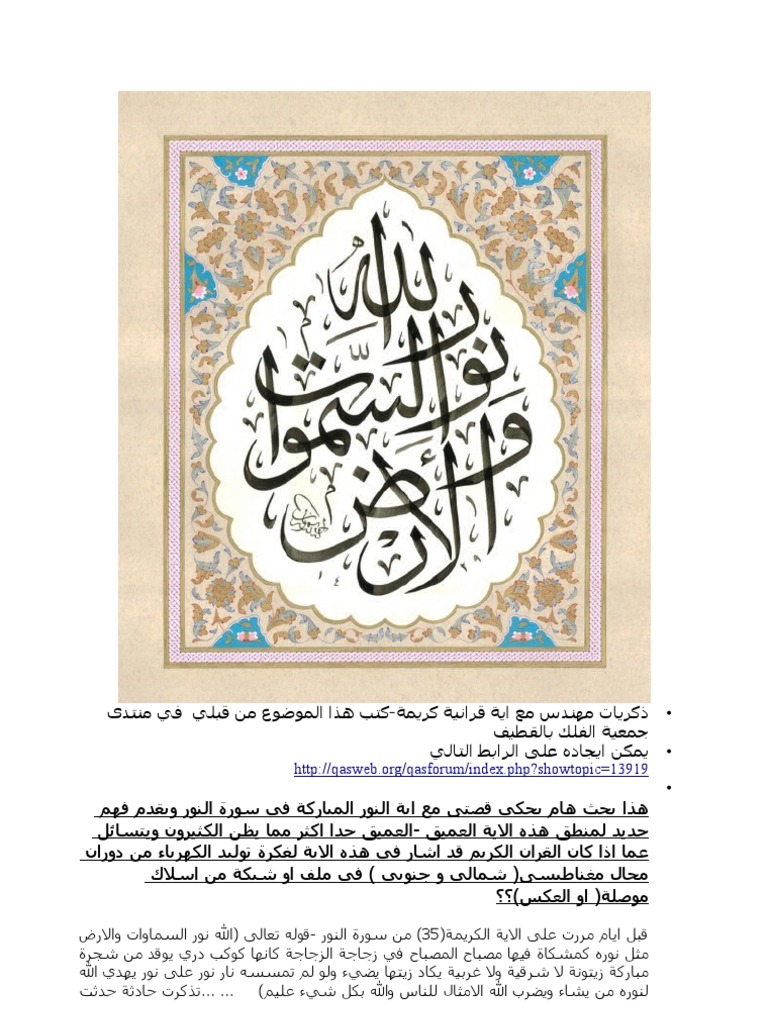 الله
نور السموات
والأرض
ذكريات مهندس مع اية قرانية كريمة-كتب هذا الموضوع من قبلي في منتدى
جمعية الفلك بالقطيف
يمكن ايجاده على الرابط التالي
http://qasweb.org/qasforum/index.php?showtopic=13919
هذا بحث هام يحكي قصتي مع اية النور المباركة في سورة النور ويقدم فهم
جديد لمنطق هذه الاية العميق -العميق جدا اكثر مما يظن الكثيرون ويتسائل
عما اذا كان القران الكريم قد اشار في هذه الاية لفكرة توليد الكهرباء من دوران
مجال مغناطيسي( شمالي و جنوبي ) في ملف او شبكة من اسلاك
موصلة( او العكس)؟؟
قبل ايام مررت على الاية الكريمة(35) من سورة النور -قوله تعالى (الله نور السماوات والارض
مثل نوره كمشكاة فيها مصباح المصباح في زجاجة الزجاجة كانها كوكب دري يوقد من شجرة
مباركة زيتونة لا شرقية ولا غربية يكاد زيتها يضيء ولو لم تمسسه نار نور على نور يهدي الله
لنوره من يشاء ويضرب الله الامثال للناس والله بكل شيء عليم) ... ...تذكرت حادثة حدثت